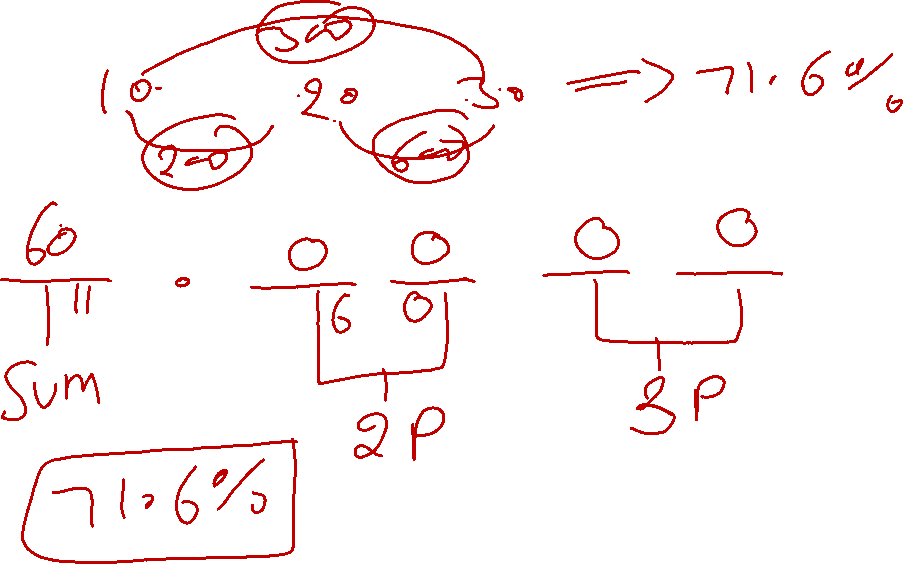 300
10 20 30 ⟹ 71.6%
200 600
60 . 0 0 0 0
11 6 0
Sum 2P 3P
71.6%